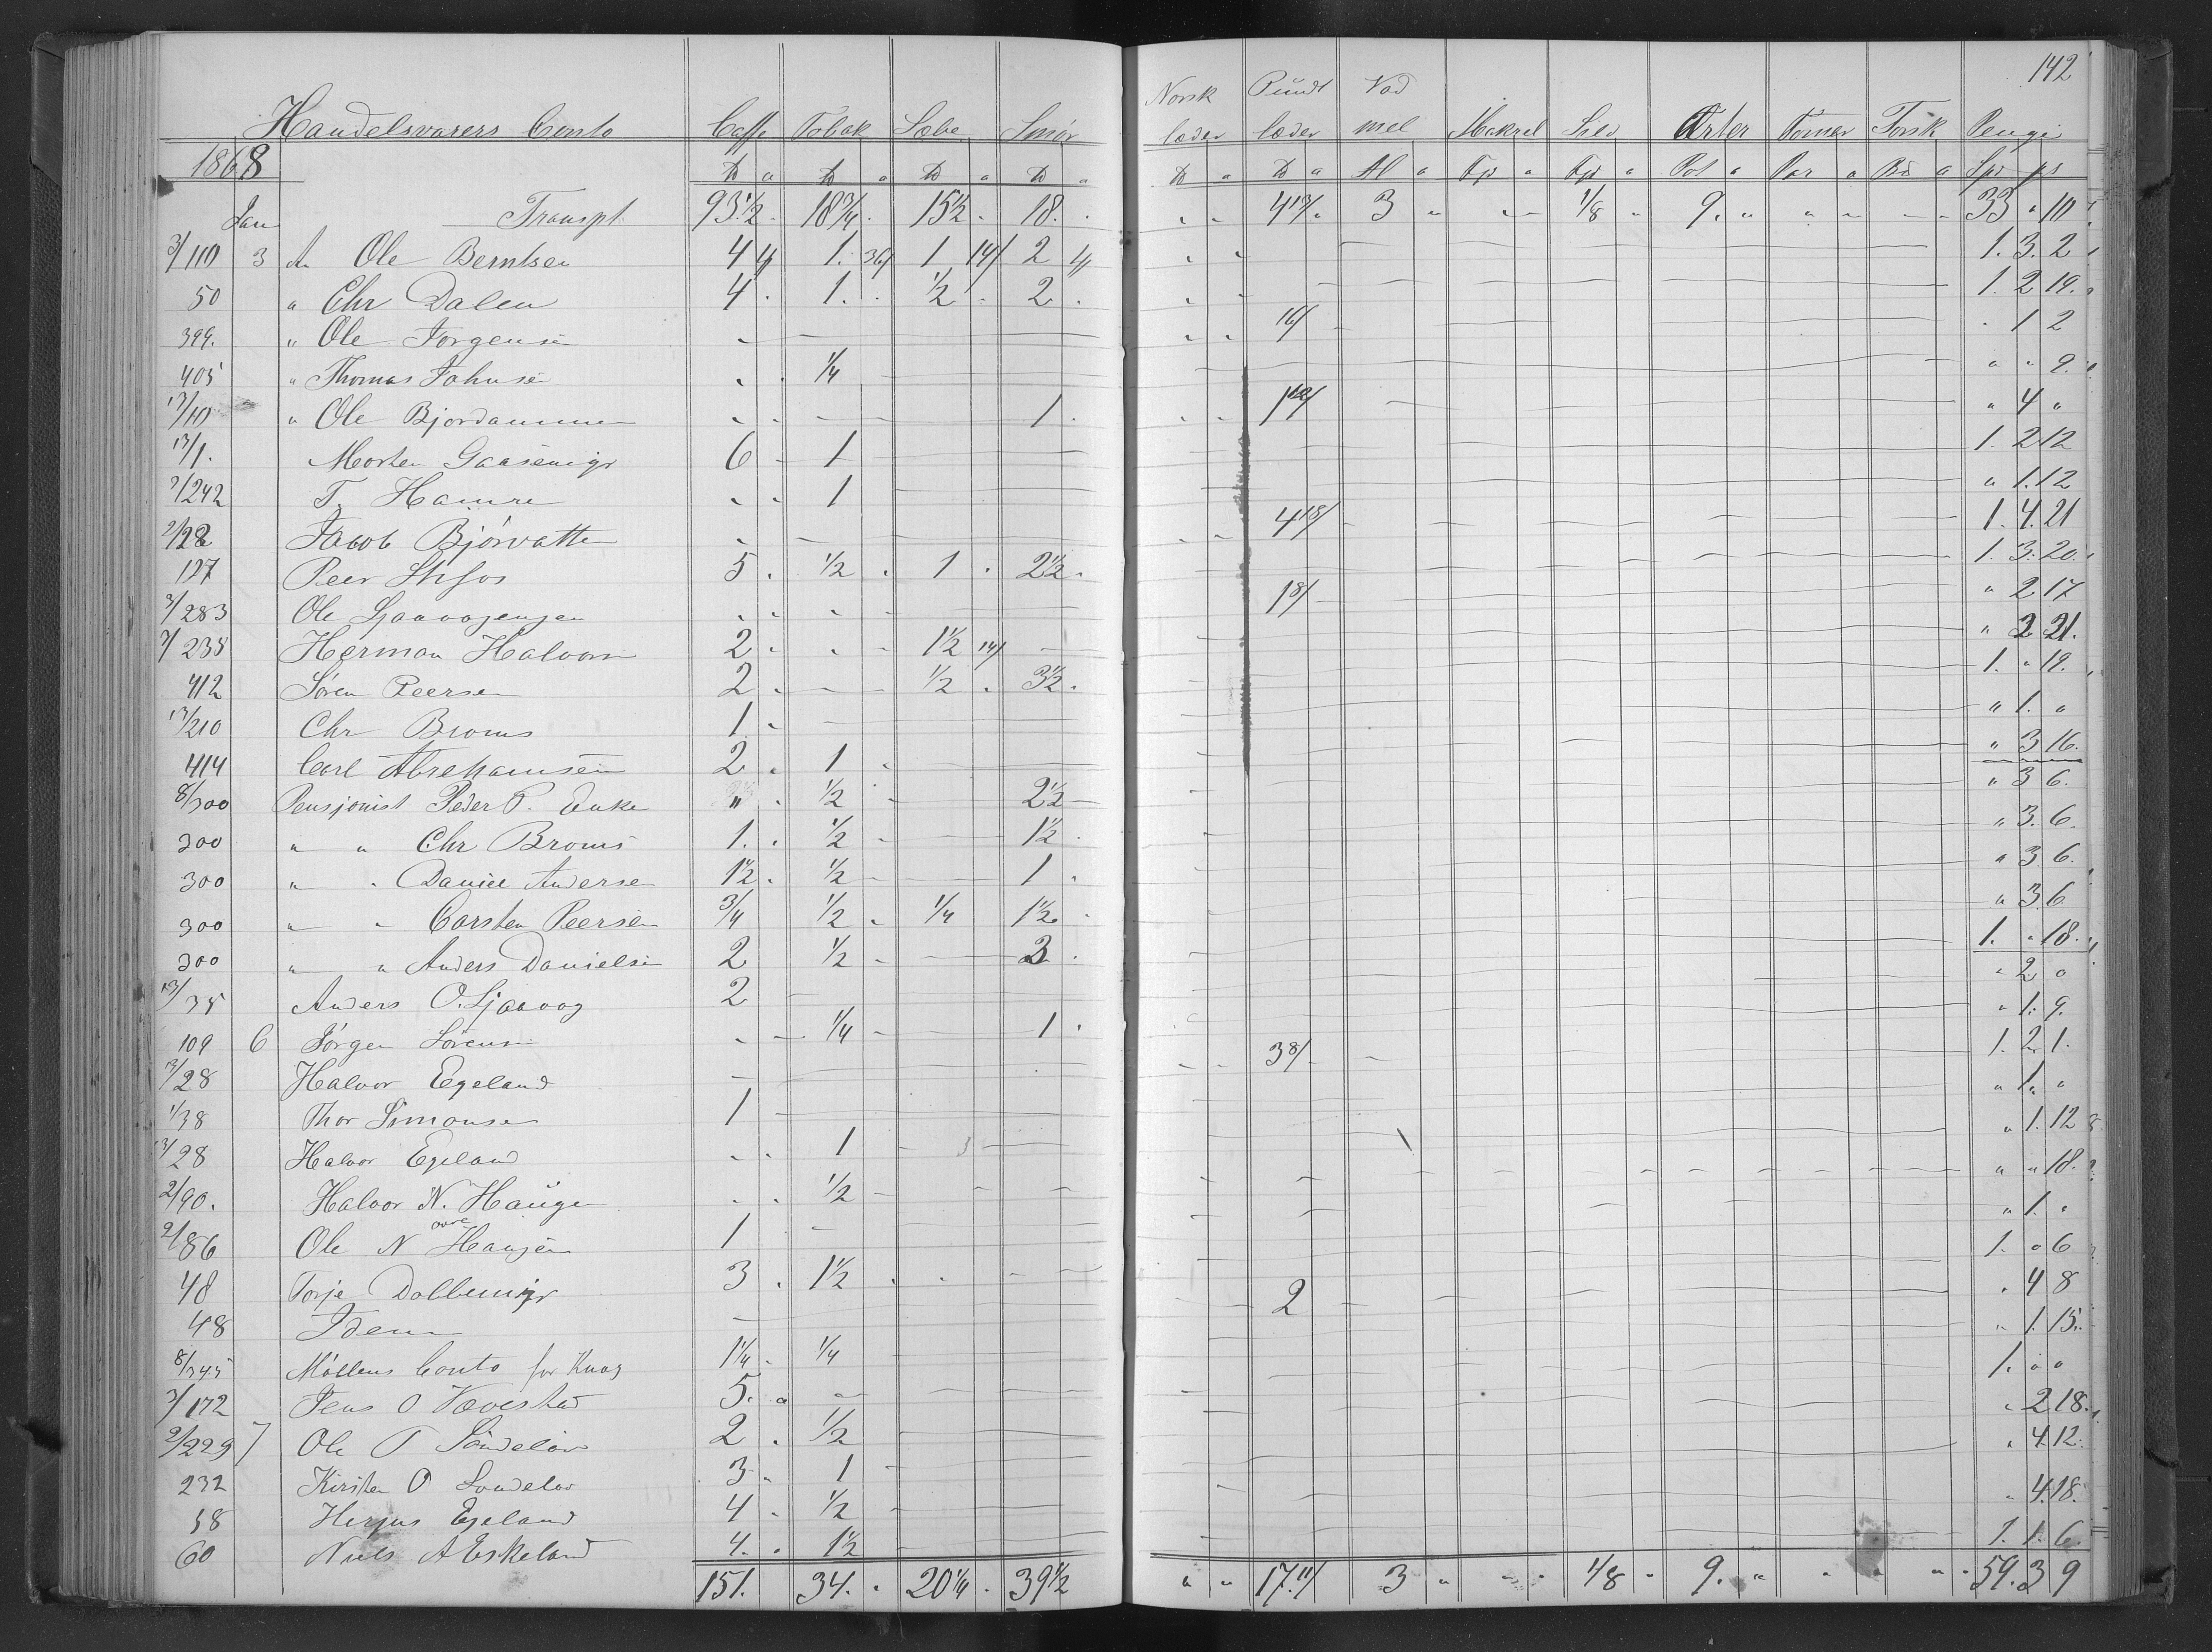 142
Norsk Pundt Vad
Handelsvarers Conto Caffe Tobak Sæbe Smør læder læder mel Makrel Sild Erter Torsk Penge
1868 ℔ a ℔ a ℔ a ℔ a ℔ a ℔ a Al a Tdr a Tdr a Pot a Par a a Spd
Jan Transpt 93 1/2 18 3/4 15 1/2 18. 3 1/8 9. 33 " 10
3/110 3 A Ole Berntsen 4 4/ 1. 36/ 1 14/ 2 4/ 1. 3. 2
50 " Chr Dalen 4 1. 1/2 2 1. 2 19.
399. " Ole Jørgensen 16/ 1 2
405 " Thomas Johnsen 1/4 " " 9.
13/10 " Ole Bjordammen 1 " 4 "
13/1. Morten Gaasemyr 6 1 1. 2 12
3/242 T. Hamre 1 " 1. 12
2/28 Jacob Bjørvatten 4 18/ 1. 4. 21
127 Peer Stifos 5 1/2 1 2 1/2 1. 3. 20.
3/283 Ole 1 8/ " 2 17
3/235 Herman Halvorsen 2 1 1/2 14/ " 2 21.
412 Søren Peersen 2 1/2 3 1/2 1. " 19.
13/210 Chr Broms 1 " 1. "
414 Carl Abrehamsen 2 1 " 3 16.
8/300 Pensjonist Peder P. Enke " 1/2 2 1/2 " 3 6.
300 " " Chr Broms 1. 1/2 1 1/2 " 3. 6.
300 " " Daniel Andersen 1 1/2 1/2 1 " 3 6.
300 " " Carsten Peersen 3/4 1/2 1/4 1 1/2 " 3 6.
300 " " Anders Danielsen 2 1/2 3 1. " 18.
13/35 Anders O. Sjaavog 2 " 2 "
109 6 Jørgen Sørensen 1/4 1 " 1. 9.
3/28 Halvor Egeland 3 8/ 1. 2. 1.
1/38 Thor Simonsen 1 " 1. "
3/28 Halvor Egeland 1 " 1. 12
2/90. Halvor N. Haugen 1/2 " " 18.
2/86 Ole N øvre Haugen 1 " 1. "
48 Torje Dalbemyr 3 1 1/2 1. " 6
48 Idem 2 " 4 8
8/345 Møllens Conto for Knag 1 1/4 1/4 " 1. 15.
3/172 Jens O Vævestad 5. 1. " "
2/229 7 Ole T Søndeløv 2 1/2 " 2 18.
232 Kirsten O Søndeløv 3 1 " 4. 12.
58 Herjus Egeland 4 1/2 " 4. 18.
60 Niels A Eskeland 4. 1 1/2 1. 1. 6.
151. 34. 20 1/4 39 1/2 " " 17. 11/ 3 " 1/8 9. " 59. 3 9